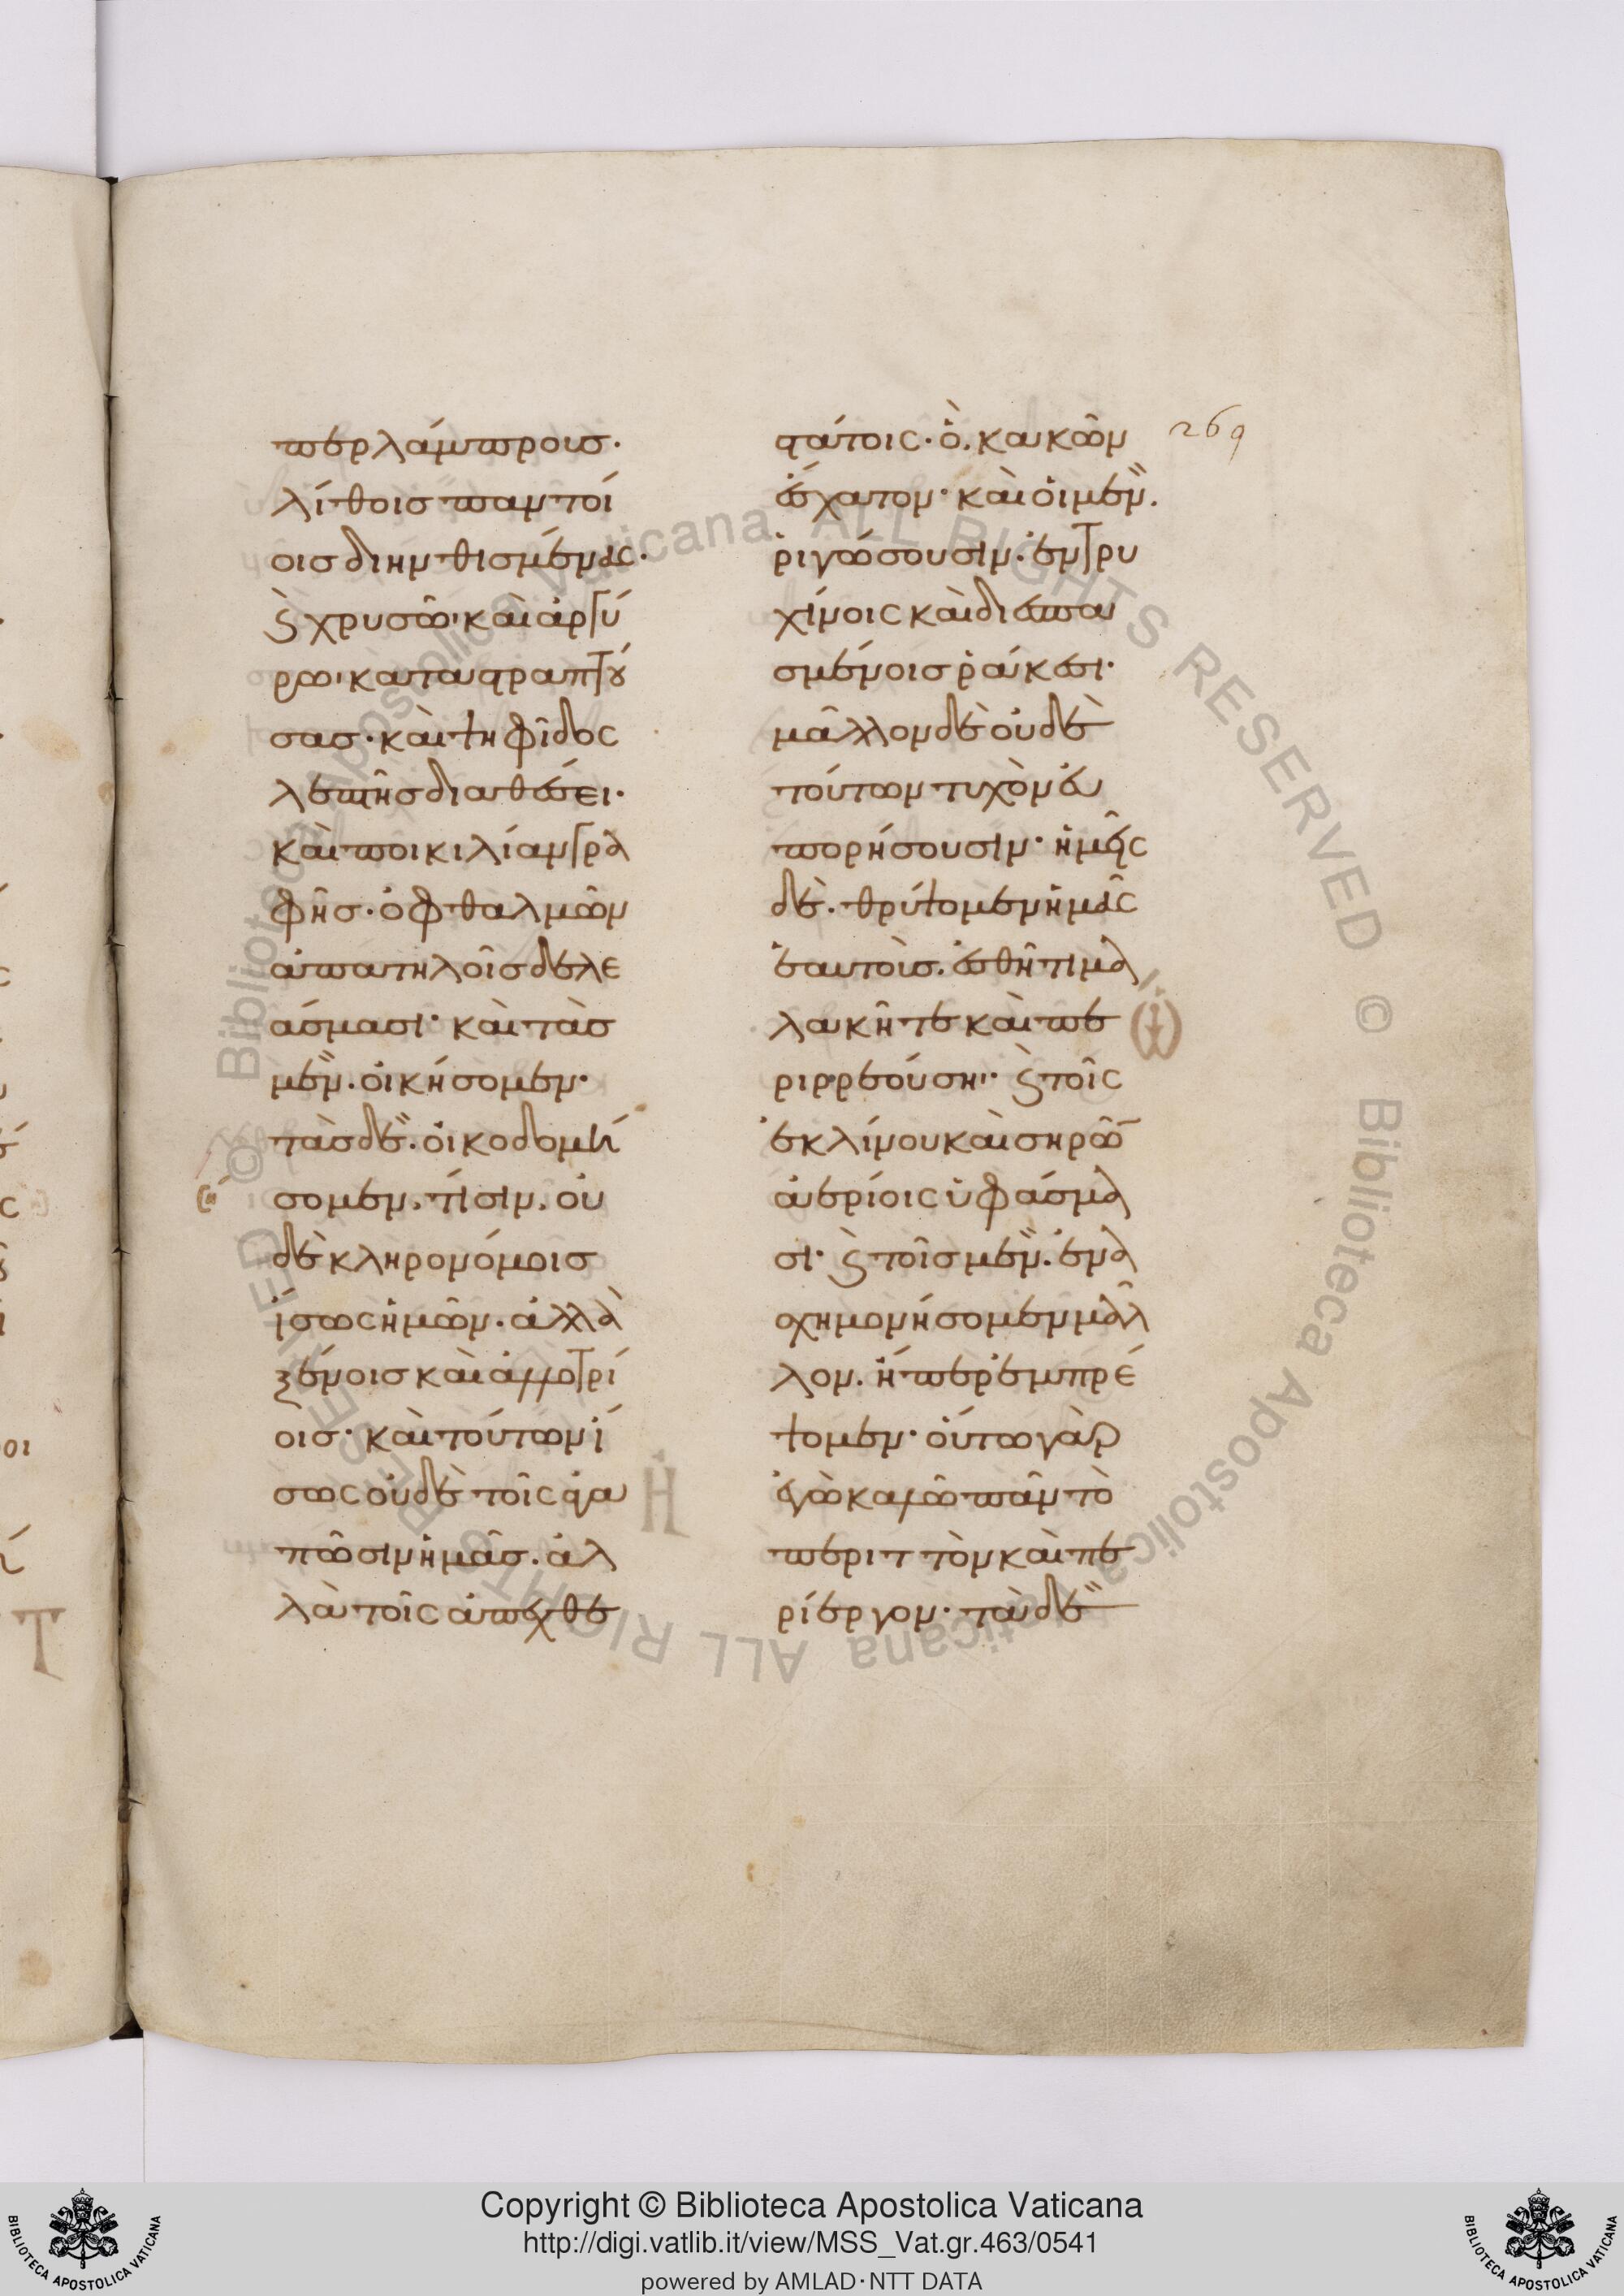 περλάμπρους·
λίθοισ παντοί
οισ διηνθισμένας·
ϛ̀ χρυσῶι καὶ ἀργύ
ρωι καταστραπτού
σας· καὶ ψηφῖδος
λεπτῆσ διαθέσει·
καὶ ποικιλίαν γρα
φῆσ· ὀφθαλμῶν
ἀπατηλοῖσ δελε
άσμασι· καὶ τὰσ
μὲν. οἰκήσομεν·
τὰσ δὲ. οἰκοδομή
σομεν, τίσιν, οὐ
δὲ κληρονόμοισ
ἴσωσ ἡμῶν. ἀλλὰ
ξένοισ καὶ ἀλλοτρί
οισ· καὶ τούτων ἴ
σωσ οὐδὲ τοῖς ἀγα
πῶσιν ἡμᾶσ. ἀλ
λὰ τοῖς ἀπεχθε
στάτοις· ὃ. κακῶν
ἔσχατον· καὶ οἱ μὲν.
ῥιγώσουσιν. ἐν τρυ
χίνοις καὶ διεσπα
σμένοισ ῥάκεσι·
μᾶλλον δὲ οὐδὲ
τούτων τυχὸν εὐ
πορήσουσιν· ἡμεῖς
δὲ. θρύψομεν ἡμᾶς
ἑαυτοὺσ. ἐσθῆτι μα
λακῆ τε καὶ πε
ριρρεούσηι· ϛ̀ τοῖς
ἐκ λίνου καὶ σηρῶν
ἀερίοις ὑφάσμα
σι· ϛ̀ τοῖσ μὲν. ἐνα
σχημονήσομεν μᾶλ
λον. ἤπερ ἐμπρέ
ψομεν· οὕτω γὰρ
ἐγὼ καλῶ πᾶν τὸ
περιττὸν καὶ πε
ρίεργον· τὰ δὲ
269
Ἡ
Τ
οι
Copyright © Biblioteca Apostolica Vaticana
http://digi.vatlib.it/view/MSS_Vat.gr.463/0541
powered by AMLAD·NTT DATA
BIBLIOTECA APOSTOLICA VATICANA
BIBLIOTECA APOSTOLICA VATICANA
© Biblioteca Apostolica Vaticana ALL RIGHTS RESERVED © Biblioteca Apostolica Vaticana ALL RIGHTS RESERVED